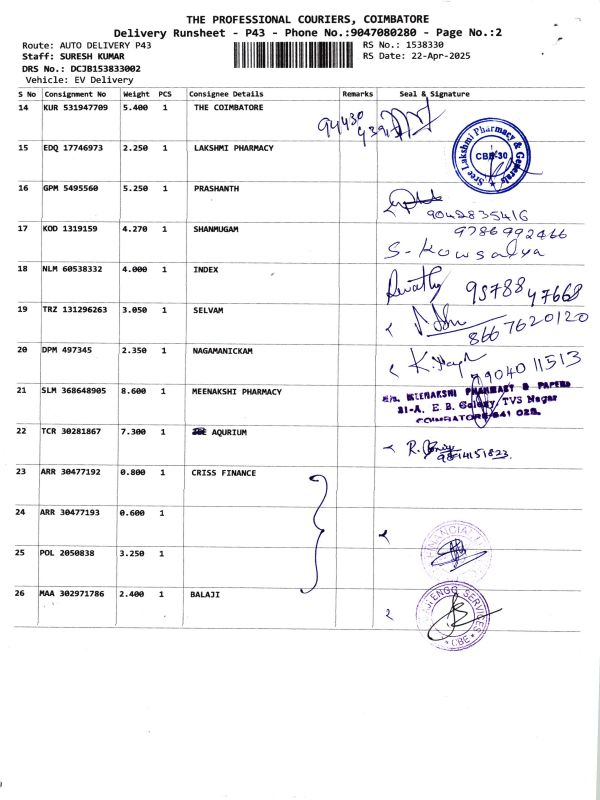 THE PROFESSIONAL COURIERS, COIMBATORE
Delivery Runsheet - P43 - Phone No.:9047080280 - Page No.:2
Route: AUTO DELIVERY P43 RS No.: 1538330
Staff: SURESH KUMAR RS Date: 22-Apr-2025
DRS No.: DCJB153833002
Vehicle: EV Delivery
S No Consignment No Weight PCS Consignee Details Remarks Seal & Signature
14 KUR 531947709 5.400 1 THE COIMBATORE
94430
15 EDQ 17746973 2.250 1 LAKSHMI PHARMACY
Sree Lakshmi Pharmacy & Generals
CBE-30
16 GPM 5495560 5.250 1 PRASHANTH
9042835416
17 KOD 1319159 4.270 1 SHANMUGAM 9786992466
S-Kowsalya
18 NLM 60538332 4.000 1 INDEX
Revathy 9578847668
19 TRZ 131296263 3.050 1 SELVAM
8667620120
20 DPM 497345 2.350 1 NAGAMANICKAM
9904011513
21 SLM 368648905 8.600 1 MEENAKSHI PHARMACY
M/s. MEENAKSHI PHARMACY & PAPERS
31-A, E. B. Colony, TVS Nagar
COIMBATORE-641 025.
22 TCR 30281867 7.300 1 AQURIUM
23 ARR 30477192 0.800 1 CRISS FINANCE
24 ARR 30477193 0.600 1
FINANCIAL
25 POL 2050838 3.250 1
26 MAA 302971786 2.400 1 BALAJI
SERVICES
CBE